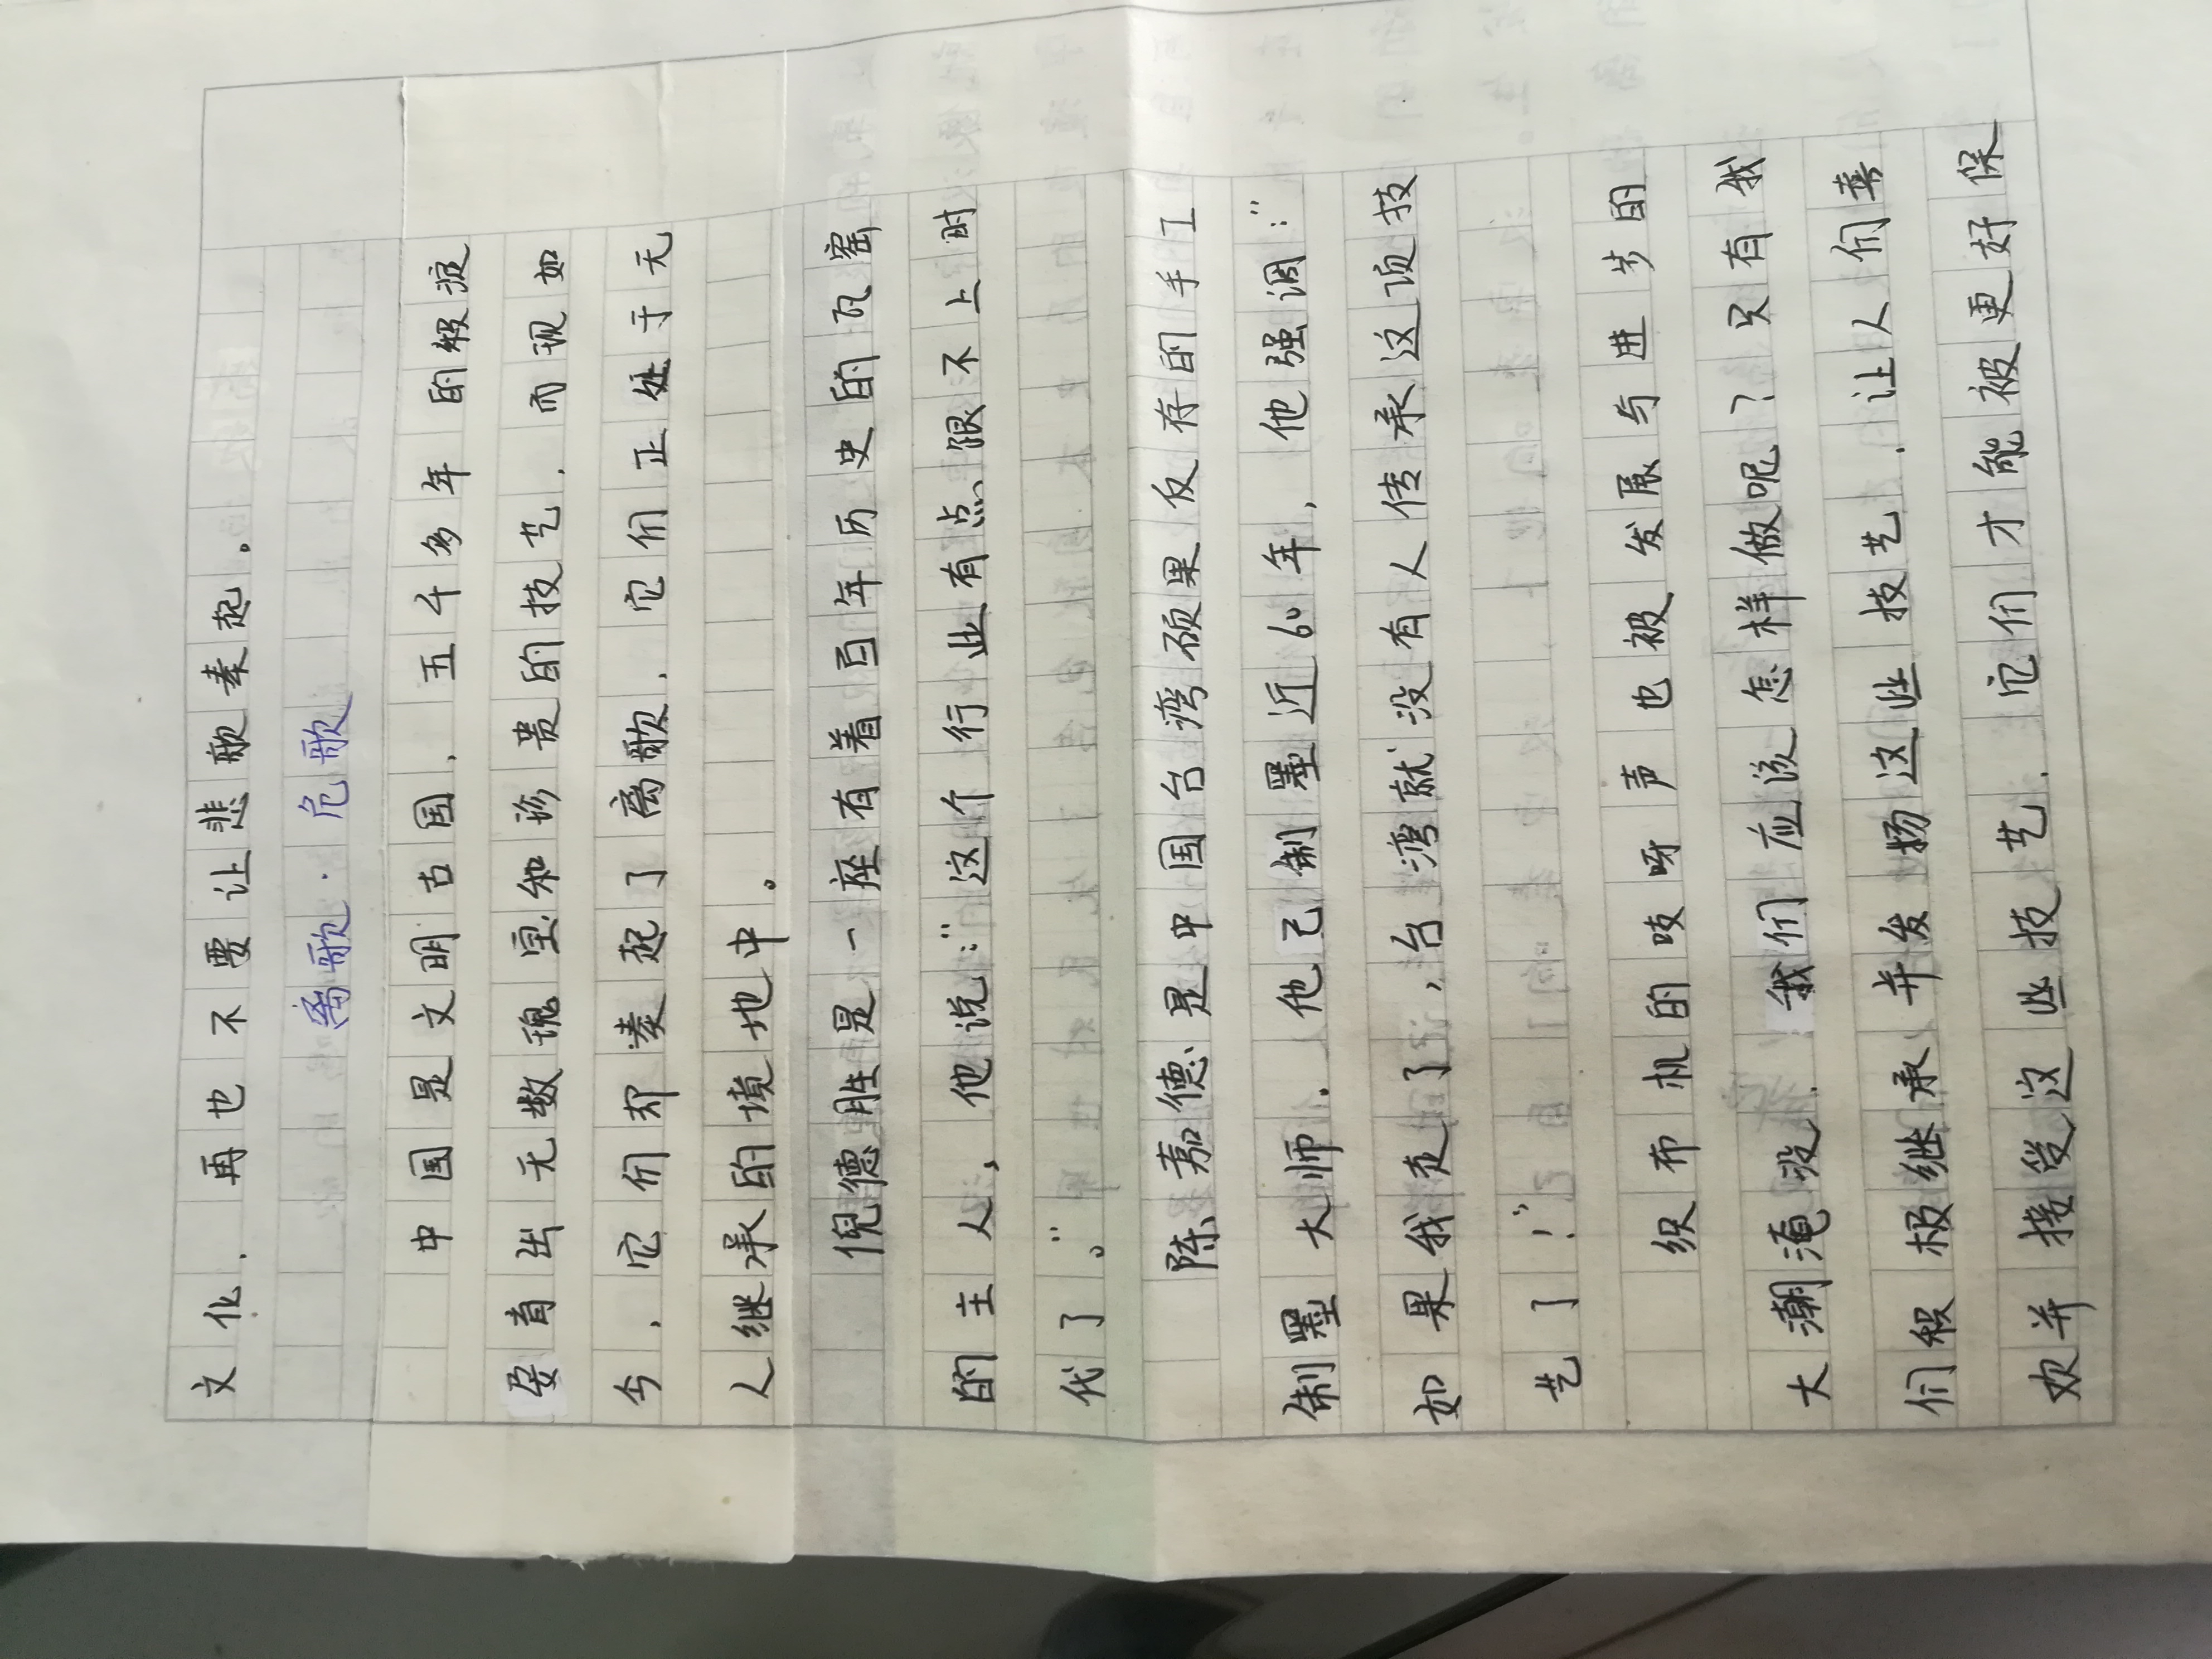 文化，再也不要让悲歌奏起。
离歌·危歌
中国是文明古国，五千多年的积淀
孕育出无数瑰宝和珍贵的技艺，而现如
今，它们却奏起了离歌，它们正处于无
人继承的境地中。
倪德胜是一座有着百年历史的瓦窑
的主人，他说：“这个行业有点跟不上时
代了。”
陈嘉德是中国台湾硕果反存的手工
制墨大师，他己制墨近60年，他强调：“
如果我走了，台湾就没有人传承这项技
艺了！”
织布机的吱呀声也被发展与进步的
大潮淹没，我们应该怎样做呢？只有我
们积极继承并发扬这些技艺，让人们喜
欢并接受这些技艺，它们才能被更好保